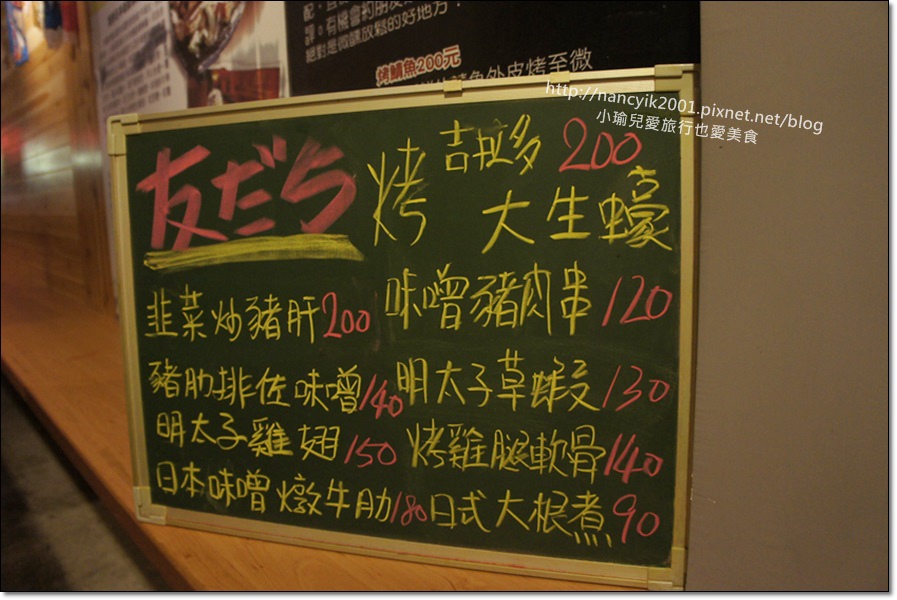 評。有機會約朋友
絕對是微醺放鬆的好地方！
烤鯖魚200元
魚外皮烤至微
http://nancyik2001.pixnet.net/blog
小瑜兒愛旅行也愛美食
友だち
烤 吉拉多 200
大生蠔
韭菜炒豬肝200
味噌豬肉串120
豬肋排佐味噌140
明太子草蝦130
明太子雞翅150
烤雞腿軟骨140
日本味噌燉牛肋180
日式大根煮90